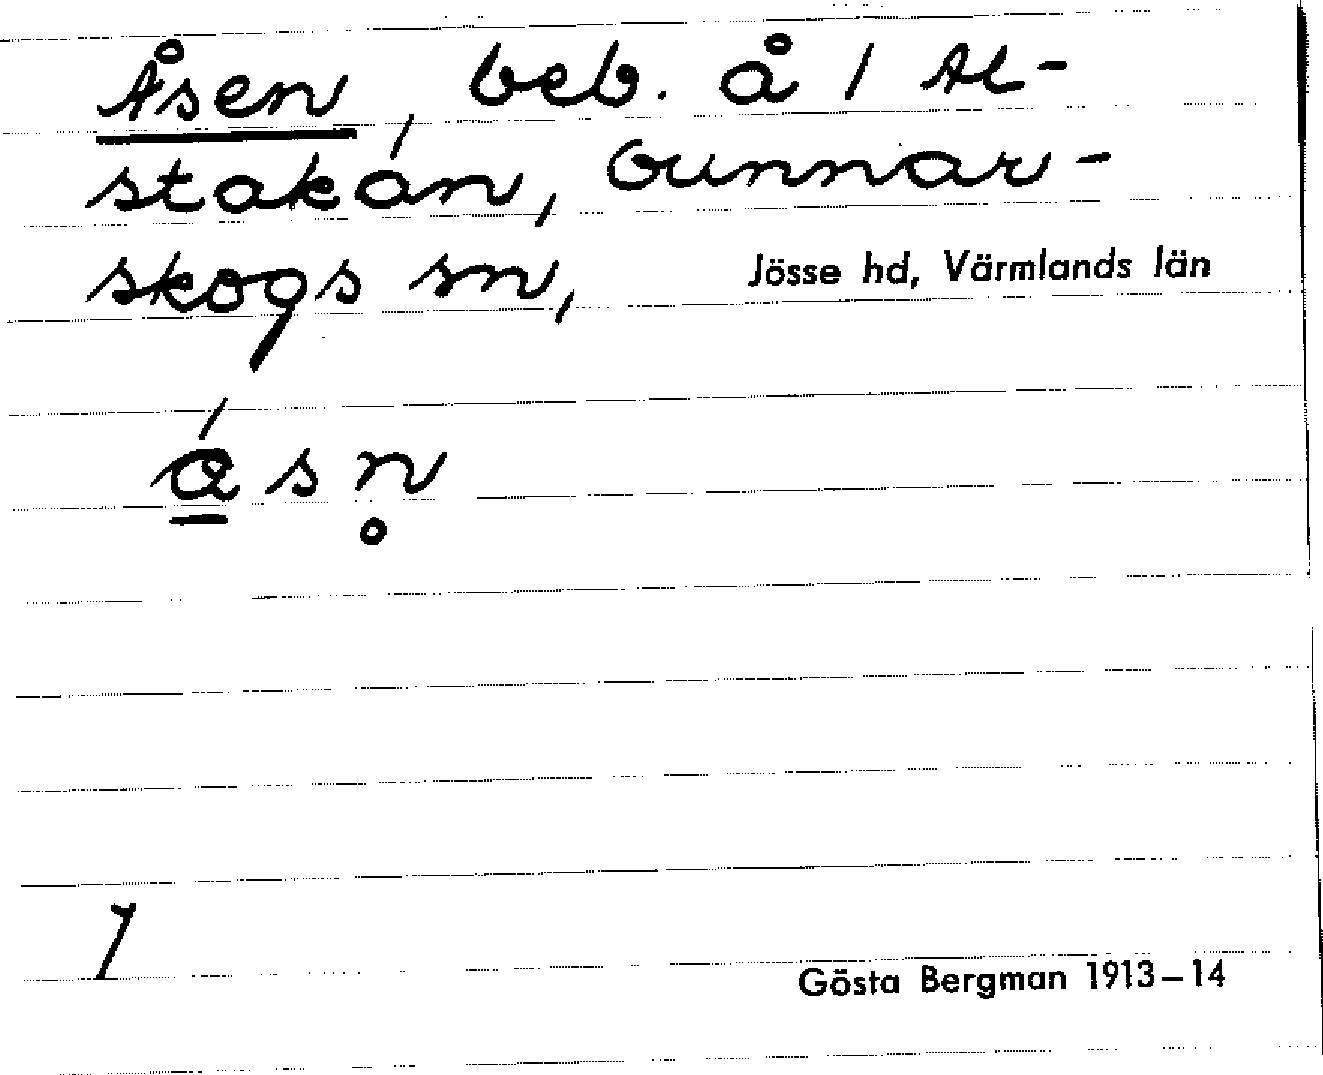 Åsen, beb. å 1 Al-
stakan, Gunnar-
skogs sn, Jösse hd, Värmlands län
á̱ s n̥
7
Gösta Bergman 1913–14